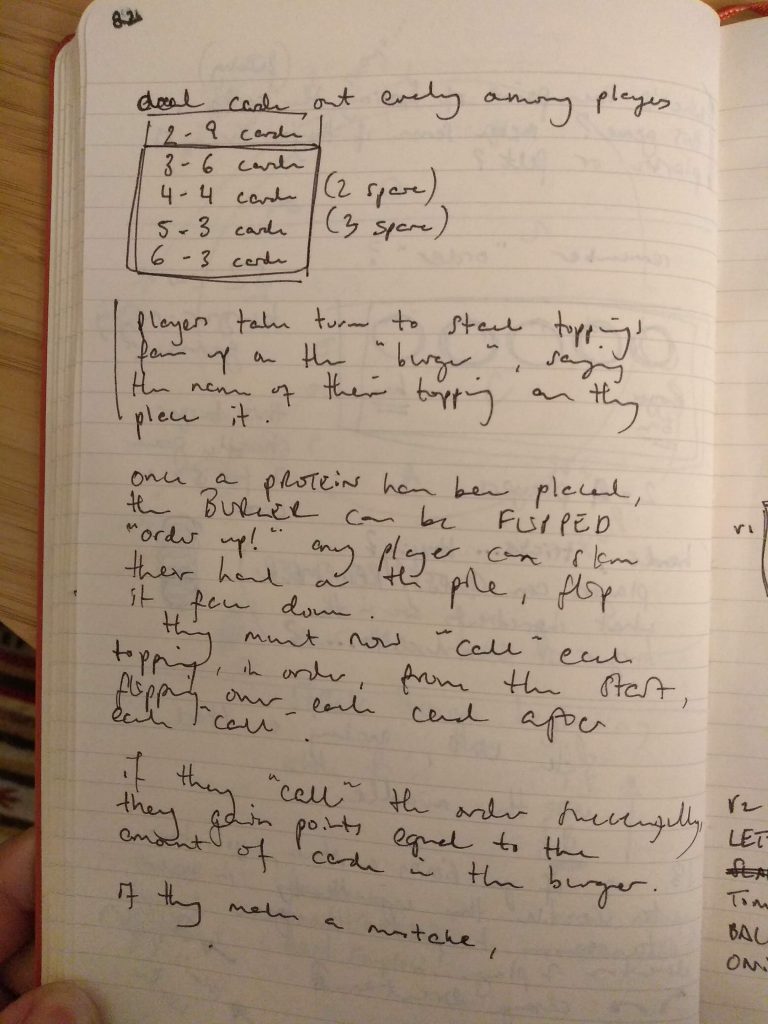 deal cards out evenly among players
2 - 9 cards
3 - 6 cards
4 - 4 cards (2 spare)
5 - 3 cards (3 spare)
6 - 3 cards
players take turns to stack toppings
face up on the "burger", saying
the name of their topping as they
place it.
once a PROTEIN has been placed,
the BURGER can be FLIPPED
"order up!" any player can slam
their hand on the pile, flip
it face down.
they must now "call" each
topping, in order, from the start,
flipping over each card after
each "call".
if they "call" the order successfully,
they gain points equal to the
amount of cards in the burger.
if they make a mistake,
r1
r2
LET
TOM